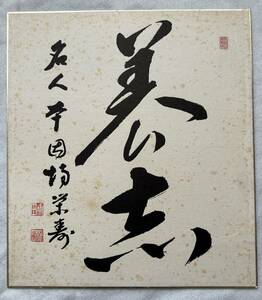 養志
名人 本因坊栄寿